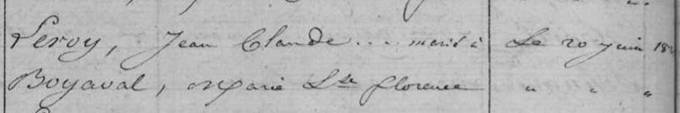 Leroy, Jean Claude ... marié à Le 20 Juin 18
Boyaval, Marie Lse florence " " "